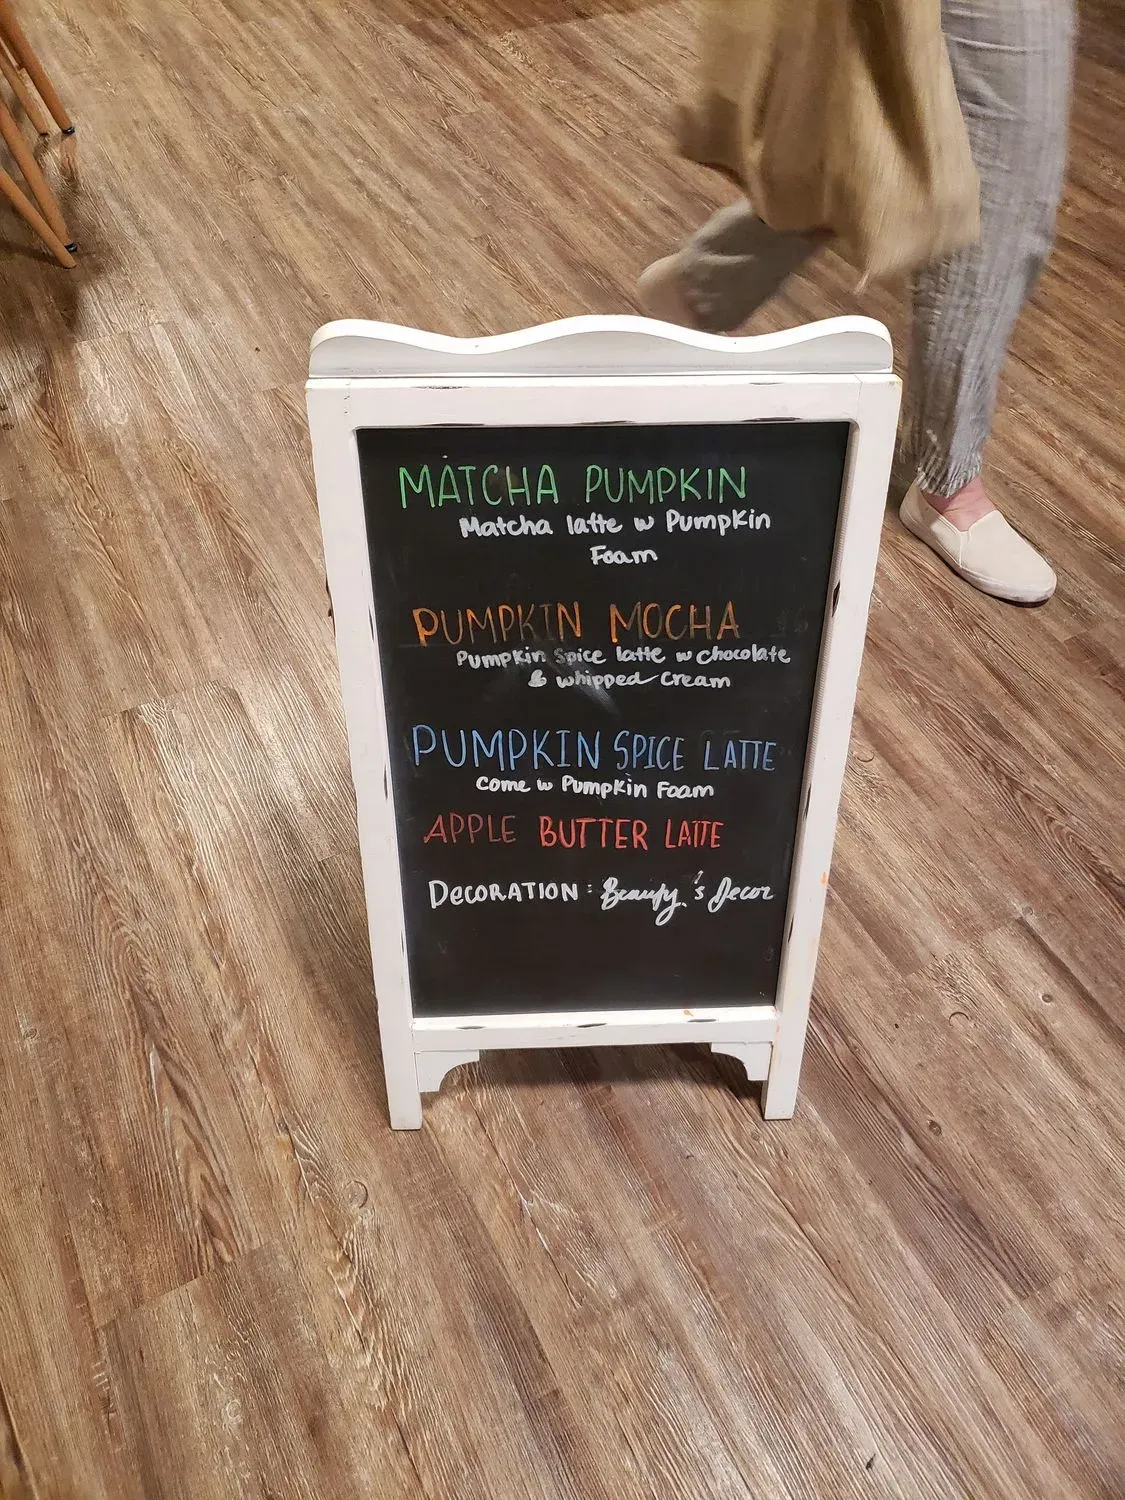 MATCHA PUMPKIN
Matcha latte w Pumpkin
Foam
PUMPKIN MOCHA
Pumpkin Spice latte w chocolate
& whipped cream
PUMPKIN SPICE LATTE
come w Pumpkin Foam
APPLE BUTTER LATTE
DECORATION: 's Decor